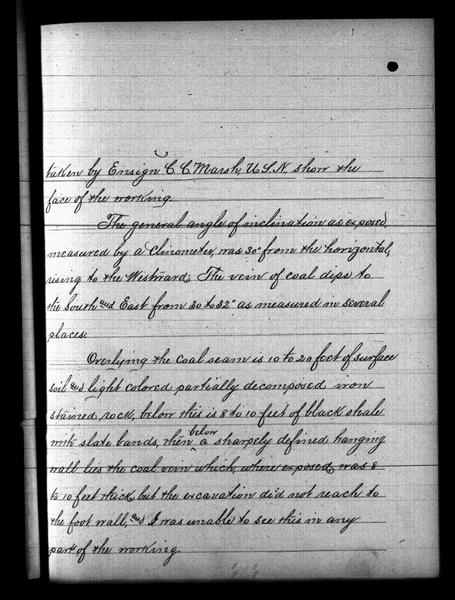 taken by Ensign C. C. Marsh, U.S.N. show the
face of the working.
The general angle of inclination as exposed,
measured by a Clinometer, was 30° from the horizontal,
rising to the Westward. The vein of coal dips to
the South and East from 30 to 32° as measured in several
places.
Overlying the coal seam is 10 to 20 feet of surface
soil and light colored partially decomposed iron
stained rock, below this is 8 to 10 feet of black shale
with slate bands, then below a sharpely defined hanging
wall lies the coal vein which, where exposed, was 8
to 10 feet thick, but the excavation did not reach to
the foot wall, and I was unable to see this in any
part of the working.